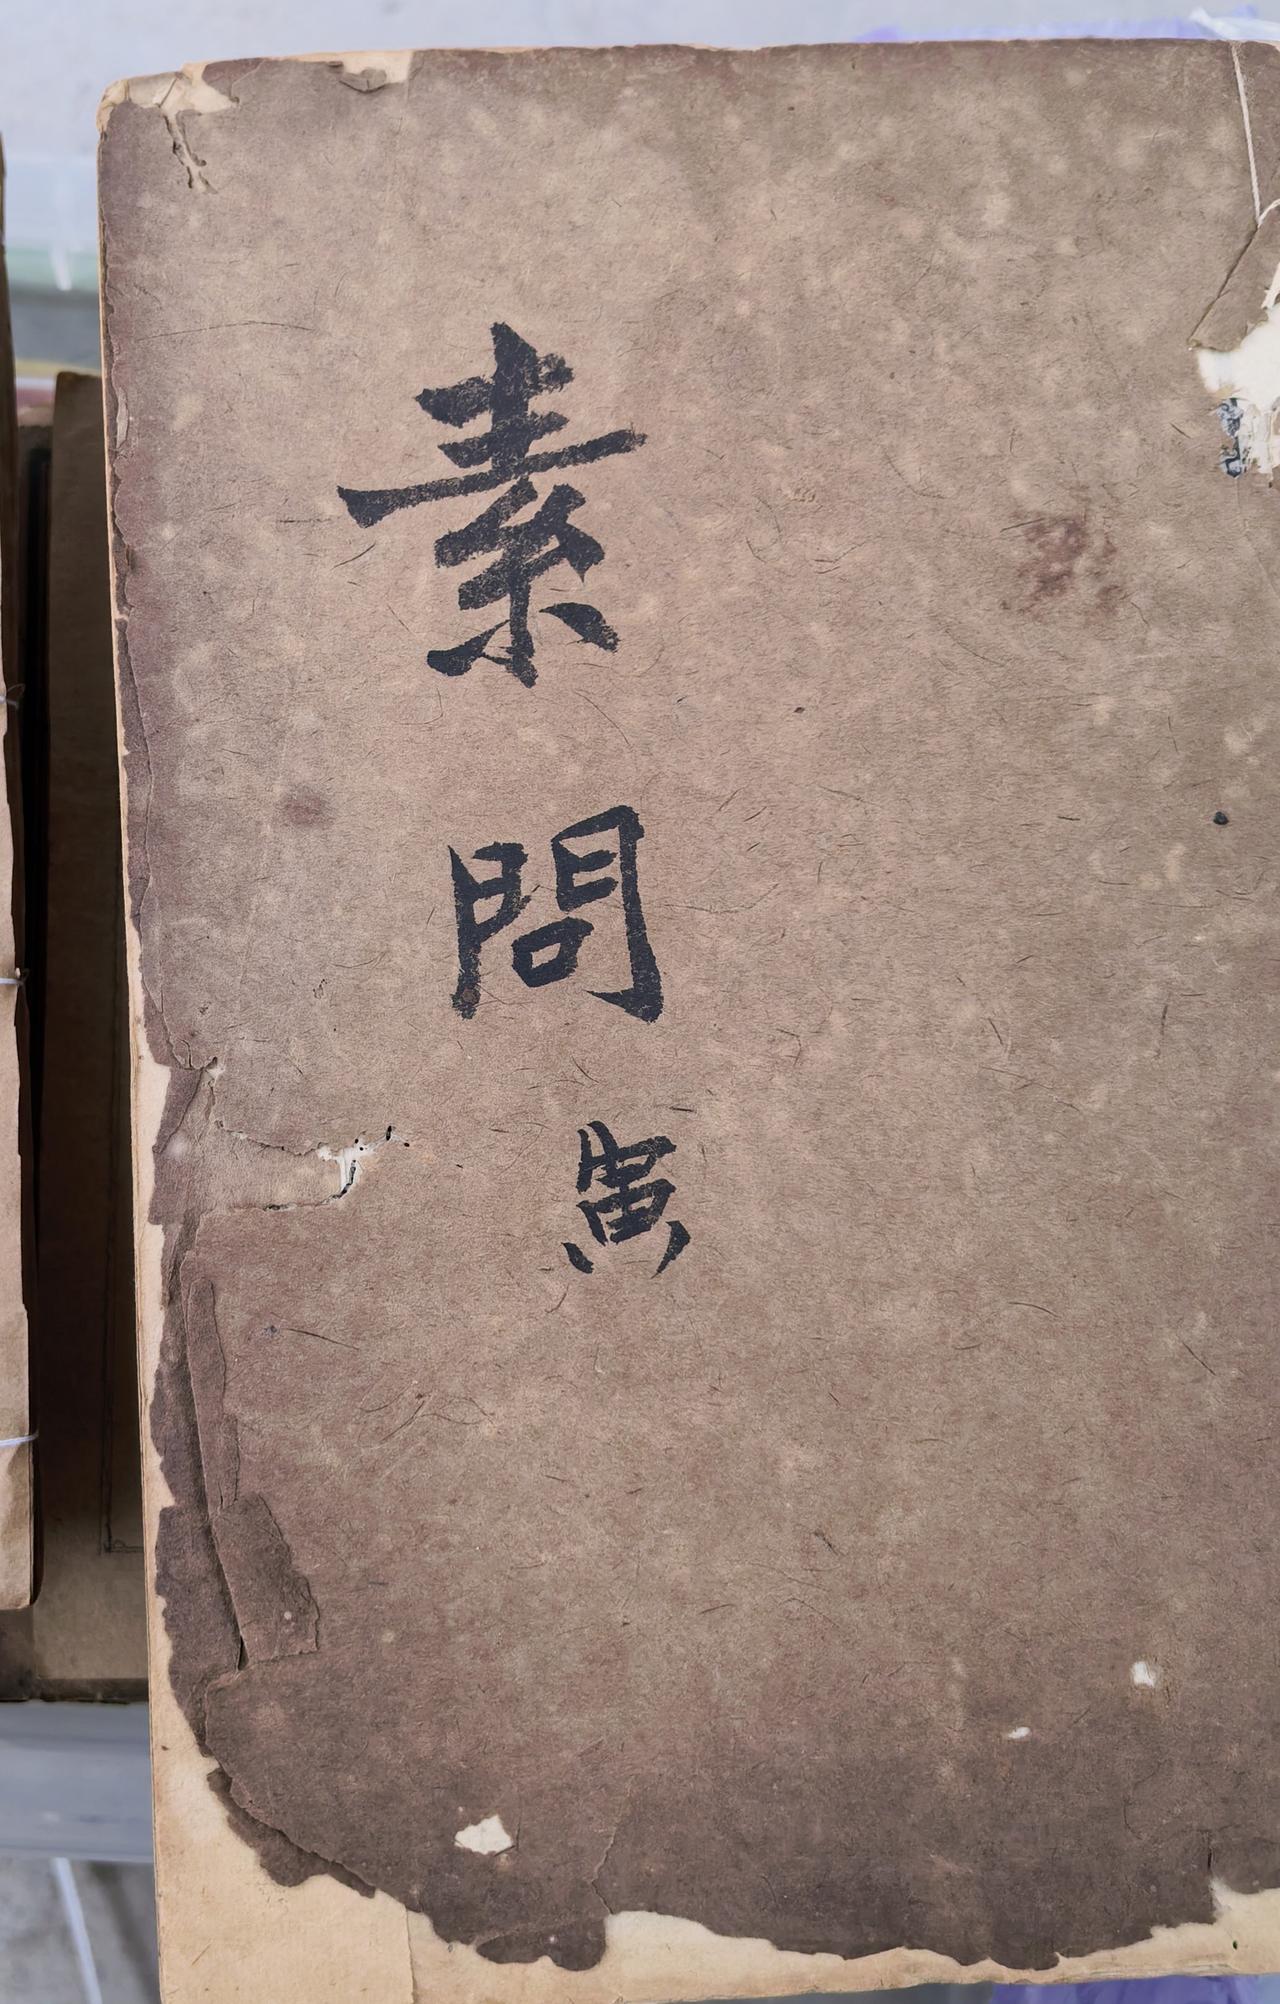 素問
寅